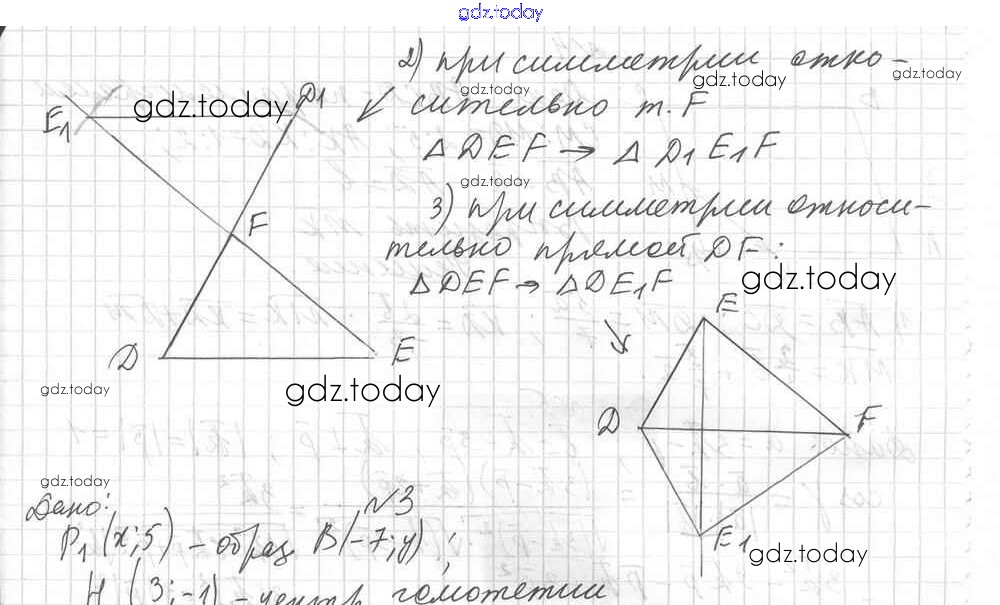 gdz.today
2) при симметрии отно-
сительно т. F
△ DEF → △ D1E1F
3) при симметрии относи-
тельно прямой DF:
△DEF → △DE1F
E1
D1
F
D
E
E
D
F
E1
gdz.today
gdz.today
gdz.today
gdz.today
gdz.today
gdz.today
gdz.today
gdz.today
gdz.today
gdz.today
№3
Дано:
(x; 5) – образ B(-7; y);
H (3; -1) – центр гомотетии